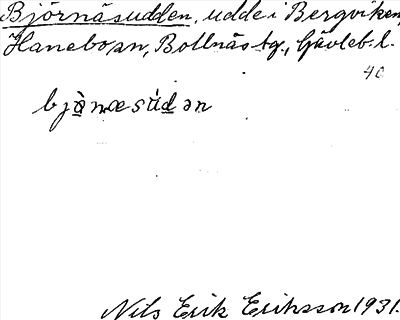 Björnäsudden, udde i Bergviken,
Hanebo sn, Bollnäs tg., Gävleb. l.
40
bjä̀næsúdən
Nils Erik Eriksson 1931.